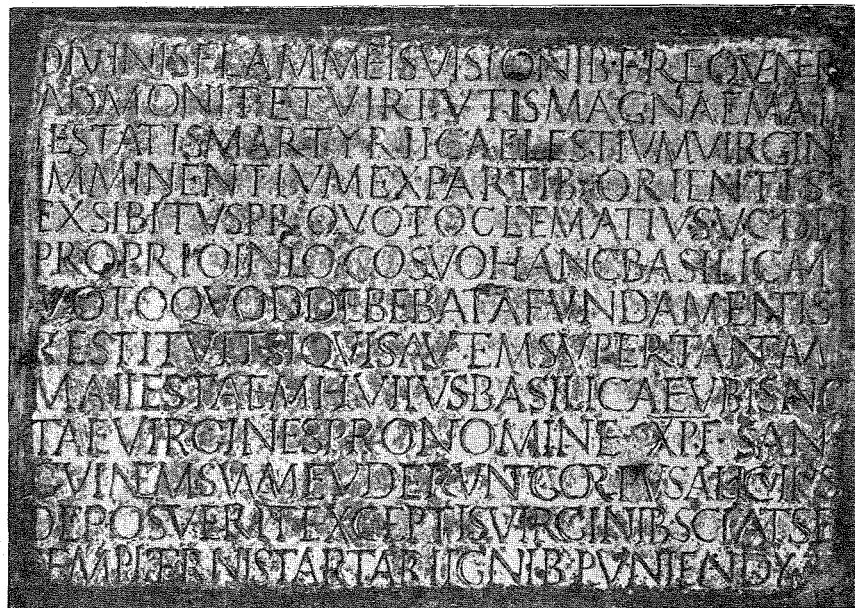 DIVINIS FLAMMEIS VISIONIB · FREQVENER
ADMONIT · ET VIRTVTIS MAGNAE MAI
IESTATIS MARTYRII CAELESTIVM VIRGIN
IMMINENTIVM EX PARTIB · ORIENTIS
EXSIBITVS PRO VOTO CLEMATIVS V C DE
PROPRIO IN LOCO SVO HANC BASILICAM
VOTO QVOD DEBEBAT A FVNDAMENTIS
RESTITVIT SI QVIS AVTEM SVPER TANTAM
MAIIESTATEM HVIIVS BASILICAE VBI SANC
TAE VIRGINES PRO NOMINE · XPI · SAN
GVINEM SVVM FVDERVNT CORPVS ALICVIIVS
DEPOSVERIT EXCEPTIS VIRGINIB · SCIAT SE
SEMPITERNIS TARTARI IGNIB · PVNIENDVM